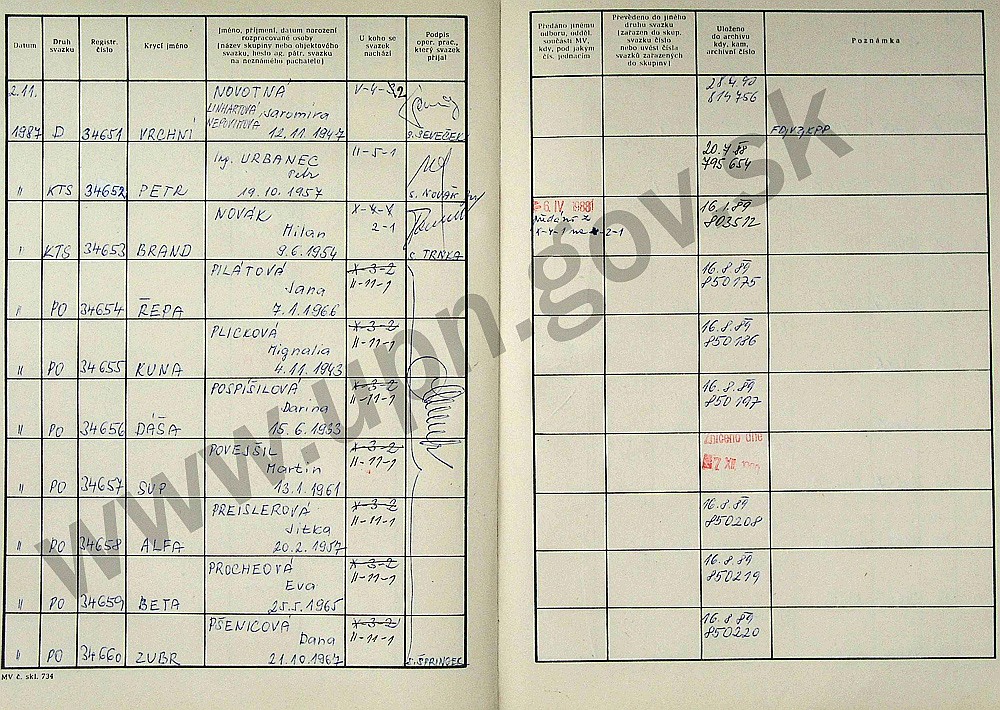 Datum
Druh svazku
Registr. číslo
Krycí jméno
Jméno, příjmení, datum narození
rozpracované osoby
[název skupiny nebo objektového
svazku, heslo az. pátr. svazku
na neznámého pachatele]
U koho se
svazek
nachází
Podpis
oper. prac.,
který svazek
přijal
Předáno jinému
odboru, odděl.
součásti MV,
kdy, pod jakým
čís. jednacím
Převedeno do jiného
druhu svazku
[zařazen do skup.
svazku číslo
nebo uvést čísla
svazků zařazených
do skupiny]
Uloženo
do archivu
kdy, kam,
archivní číslo
Poznámka
2.11. NOVOTNÁ V-4-3.2 28.4.90
LINHARTOVÁ Jaromíra 814756
NEPOVÍMOVÁ
1987 D 34651 VRCHNÍ 12.11.1947 S. SEVEČEK FD, VZ, KPP
Ing. URBANEC II-5-1 20.7.88
Petr 795654
" KTS 34652 PETR 19.10.1957 S. NOVÁK
NOVÁK X-4-1 6. IV. 1988 16.1.89
Milan 2-1 předání z 803512
X-4-1 na X-2-1
" KTS 34653 BRAND 9.6.1954 S. TRNKA
PILÁTOVÁ X-3-2 16.8.89
Jana II-11-1 850175
" PO 34654 ŘEPA 7.1.1966
PLICKOVÁ X-3-2 16.8.89
Mignalia II-11-1 850186
" PO 34655 KUNA 4.11.1943
POSPÍŠILOVÁ X-3-2 16.8.89
Darina II-11-1 850197
" PO 34656 DÁŠA 15.6.1933
POVEJŠIL X-3-2 Zničeno dne
Martin II-11-1 7. XII.
" PO 34657 SUP 13.1.1961
PREISLEROVÁ X-3-2 16.8.89
Jitka II-11-1 850208
" PO 34658 ALFA 20.2.1957
PROCHEOVÁ X-3-2 16.8.89
Eva II-11-1 850219
" PO 34659 BETA 25.5.1965
PŠENICOVÁ X-3-2 16.8.89
Dana II-11-1 850220
" PO 34660 ZUBR 21.10.1967 S. ŠPRINGEL
MV č. skl. 734
www.upn.gov.sk